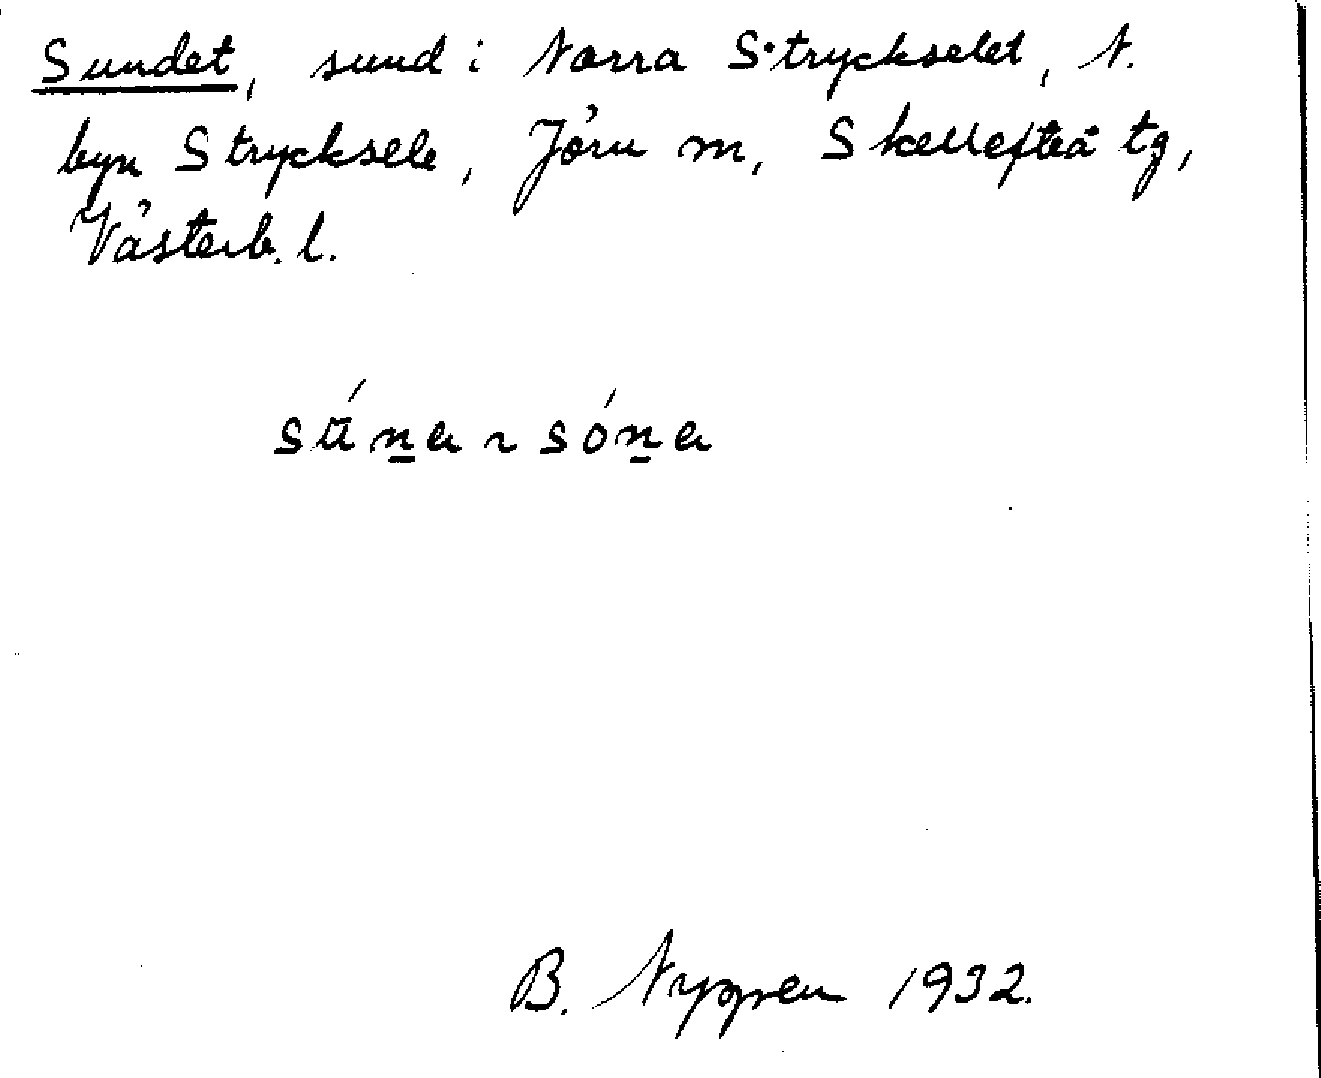 Sundet, sund i Norra Stryckselet, N.
byn Strycksele, Jörn sn, Skellefteå tg,
Västerb. l.
sú̄n̲a ~ són̲a
B. Nyggren 1932.